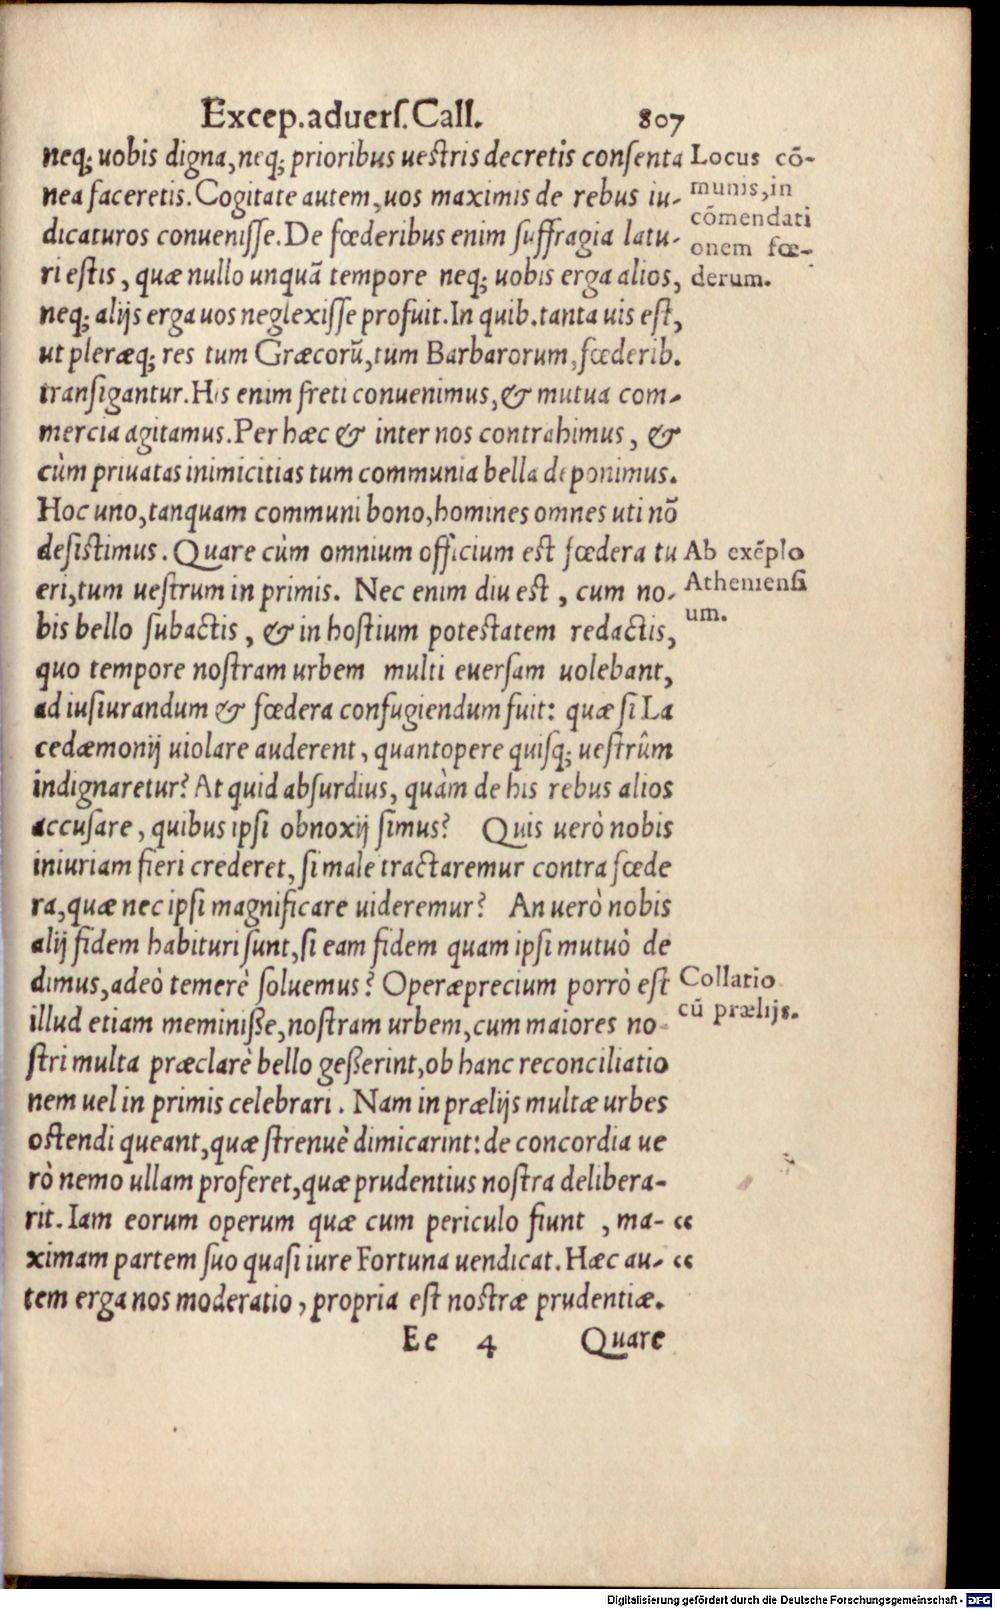 Excep.aduerſ.Call. 807
neq; uobis digna, neq; prioribus ueſtris decretis conſenta
nea faceretis. Cogitate autem, uos maximis de rebus iu-
dicaturos conueniſſe. De fœderibus enim ſuffragia latu-
ri eſtis, quæ nullo unquã tempore neq; uobis erga alios,
neq; alijs erga uos neglexiſſe profuit. In quib. tanta uis eſt,
ut pleræq; res tum Græcorũ, tum Barbarorum, fœderib.
tranſigantur. His enim freti conuenimus, & mutua com-
mercia agitamus. Per hæc & inter nos contrahimus, &
cùm priuatas inimicitias tum communia bella deponimus.
Hoc uno, tanquam communi bono, homines omnes uti nõ
deſiſtimus. Quare cùm omnium officium eſt fœdera tu
eri, tum ueſtrum in primis. Nec enim diu eſt, cum no-
bis bello ſubactis, & in hoſtium poteſtatem redactis,
quo tempore noſtram urbem multi euerſam uolebant,
ad iuſiurandum & fœdera confugiendum fuit: quæ ſi La
cedæmonij uiolare auderent, quantopere quiſq; ueſtrûm
indignaretur? At quid abſurdius, quàm de his rebus alios
accuſare, quibus ipſi obnoxij ſimus? Quis uerò nobis
iniuriam fieri crederet, ſi male tractaremur contra fœde
ra, quæ nec ipſi magnificare uideremur? An uerò nobis
alij fidem habituri ſunt, ſi eam fidem quam ipſi mutuò de
dimus, adeò temerè ſoluemus? Operæprecium porrò eſt
illud etiam meminiße, noſtram urbem, cum maiores no-
ſtri multa præclarè bello geßerint, ob hanc reconciliatio
nem uel in primis celebrari. Nam in prælijs multæ urbes
oſtendi queant, quæ ſtrenuè dimicarint: de concordia ue
rò nemo ullam proferet, quæ prudentius noſtra delibera-
rit. Iam eorum operum quæ cum periculo fiunt, ma- “
ximam partem ſuo quaſi iure Fortuna uendicat. Hæc au- “
tem erga nos moderatio, propria eſt noſtræ prudentiæ.
Ee 4 Quare
Locus cõ-
munis, in
cõmendati
onem fœ-
derum.
Ab exẽplo
Athenienſi
um.
Collatio
cũ prælijs.
Digitalisierung gefördert durch die Deutsche Forschungsgemeinschaft - DFG